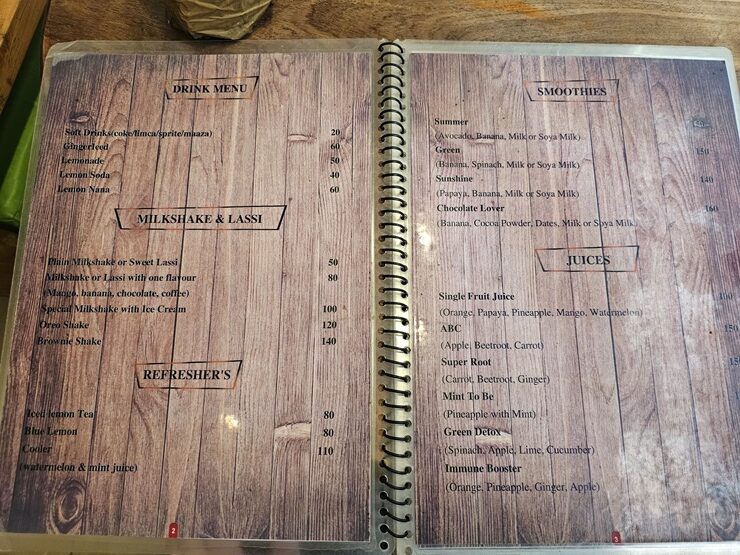 DRINK MENU
Soft Drinks(coke/limca/sprite/maaza) 20
60
Lemonade 50
Lemon Soda 40
Lemon Nana 60
MILKSHAKE & LASSI
Plain Milkshake or Sweet Lassi 50
Milkshake or Lassi with one flavour 80
(Mango, banana, chocolate, coffee)
Special Milkshake with Ice Cream 100
Oreo Shake 120
Brownie Shake 140
REFRESHER'S
Iced lemon Tea 80
Blue Lemon 80
Cooler 110
(watermelon & mint juice)
2
SMOOTHIES
Summer
(Avocado, Banana, Milk or Soya Milk)
Green 150
(Banana, Spinach, Milk or Soya Milk)
Sunshine 140
(Papaya, Banana, Milk or Soya Milk)
Chocolate Lover 160
(Banana, Cocoa Powder, Dates, Milk or Soya Milk)
JUICES
Single Fruit Juice 100
(Orange, Papaya, Pineapple, Mango, Watermelon)
ABC 150
(Apple, Beetroot, Carrot)
Super Root
(Carrot, Beetroot, Ginger)
Mint To Be
(Pineapple with Mint)
Green Detox
(Spinach, Apple, Lime, Cucumber)
Immune Booster
(Orange, Pineapple, Ginger, Apple)
3